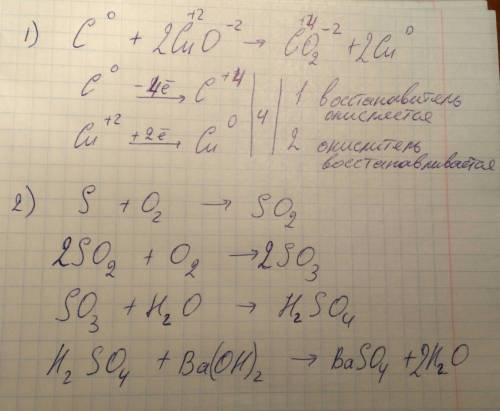 1) C⁰ + 2Cu⁺²O⁻² → C⁺⁴O₂⁻² + 2Cu⁰
C⁰ −4ē → C⁺⁴ | 4 | 1 восстановитель окисляется
Cu⁺² +2ē → Cu⁰ | 2 окислитель восстанавливается
2) S + O₂ → SO₂
2SO₂ + O₂ → 2SO₃
SO₃ + H₂O → H₂SO₄
H₂SO₄ + Ba(OH)₂ → BaSO₄ + 2H₂O